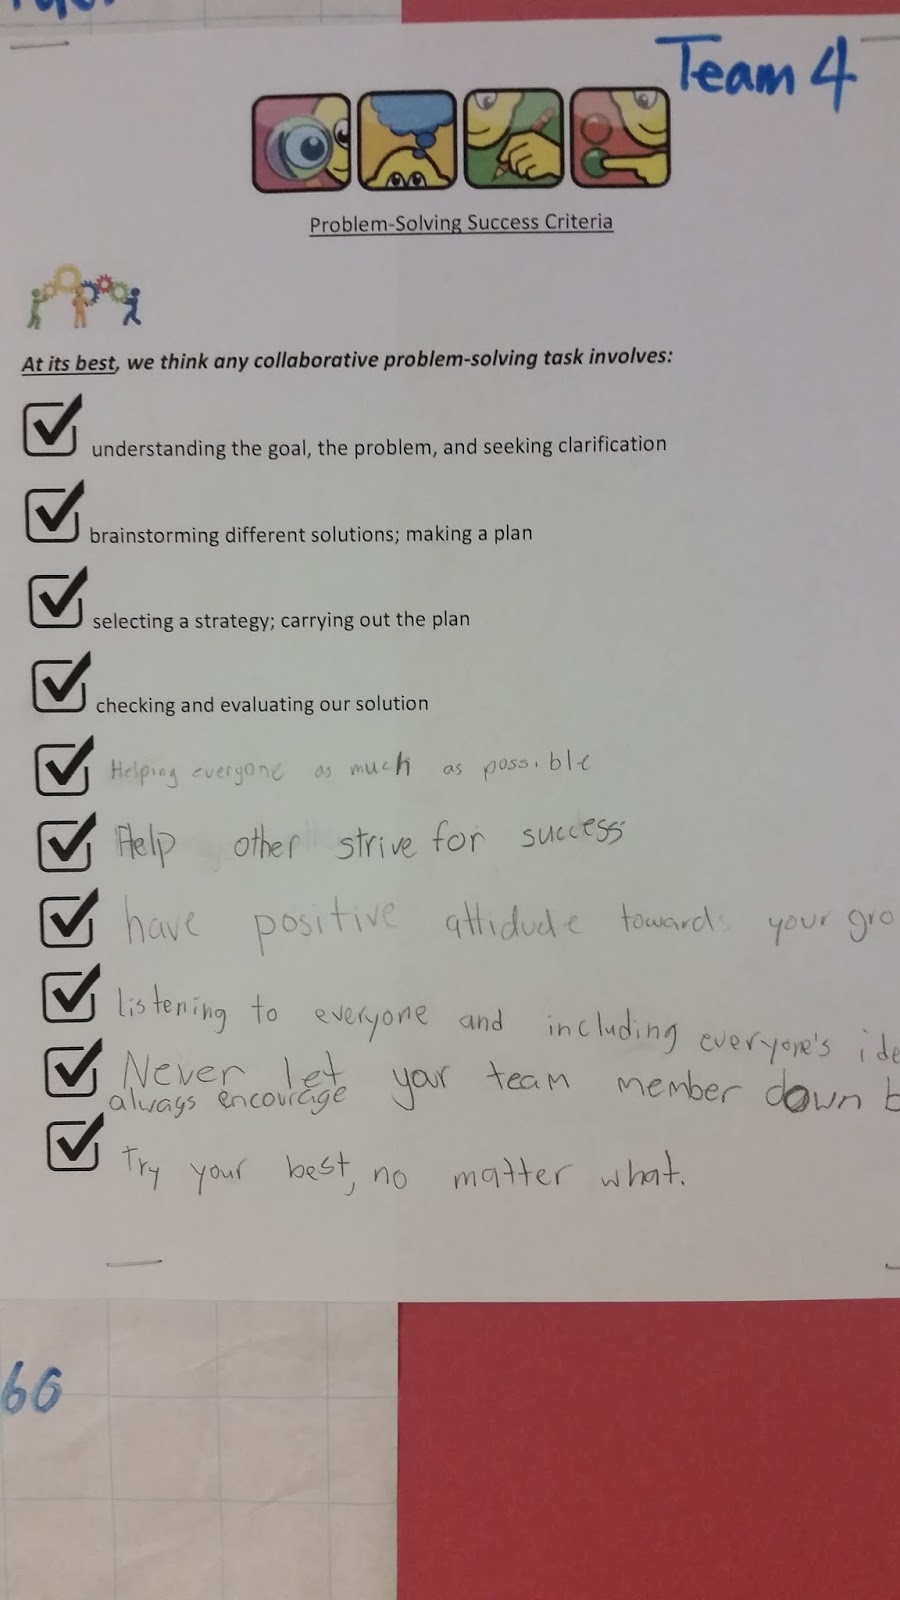 Team 4
Problem-Solving Success Criteria
At its best, we think any collaborative problem-solving task involves:
understanding the goal, the problem, and seeking clarification
brainstorming different solutions; making a plan
selecting a strategy; carrying out the plan
checking and evaluating our solution
Helping everyone as much as possible
Help other strive for success
have positive attidude towards your gro
listening to everyone and including everyone's ide
Never let your team member down b
always encourage
Try your best, no matter what.
66